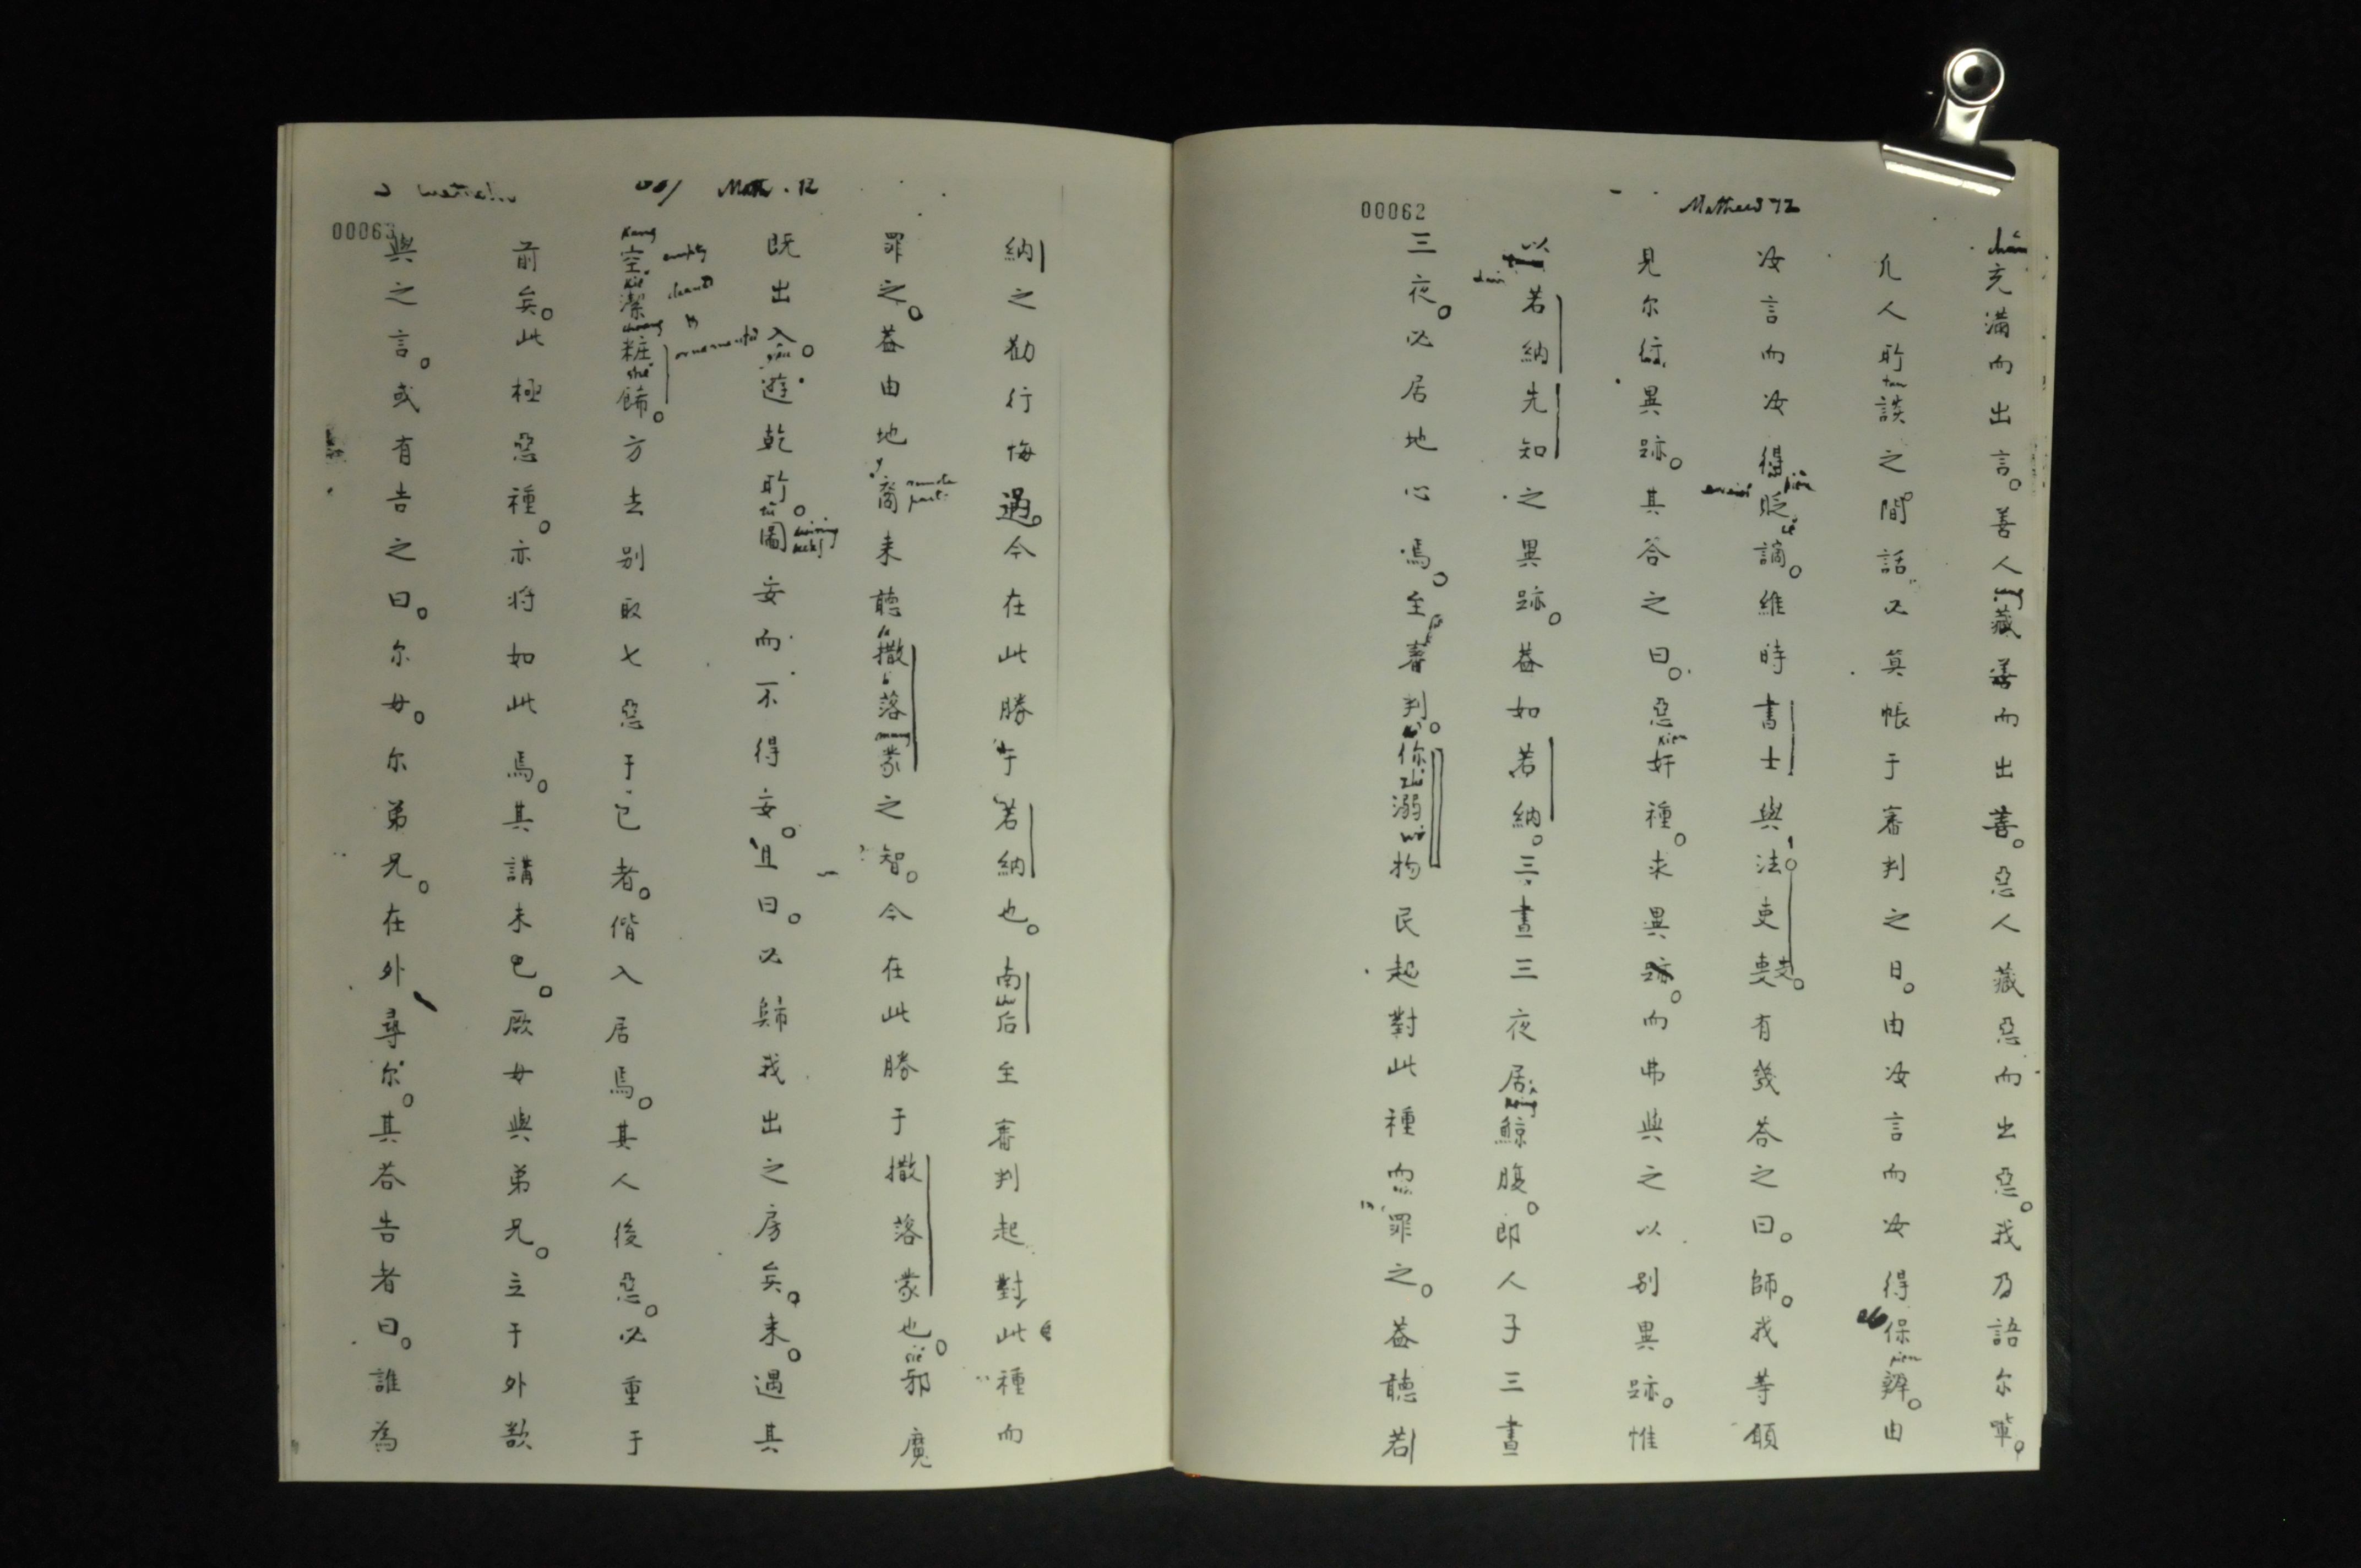 Mathew 12
00062
充滿而出言。善人藏善而出善。惡人藏惡而出惡。我乃語尔軰。
凢人所談之間話。必筭帳于審判之日。由汝言而汝得保辧。由
汝言而汝得貶謫。維時書士與法吏有幾荅之曰。師。我等願
見尔行異跡。其荅之曰。惡奸種。求異跡。而弗與之以别異跡。惟
以若納先知之異跡。葢如若納。三晝三夜居鯨腹。即人子三晝
三夜。必居地心焉。至審判。你溺物民起對此種而罪之。葢聽若
Math. 12
00063
納之勸行悔過。今在此勝于若納也。南后至審判起對此種而
罪之。葢由地裔来聽撒落蒙之智。今在此勝于撒落蒙也。邪魔
既出人。遊乾所。圖安而不得安。且曰。必歸我出之房矣。来。遇其
空潔粧餙。方去别取七惡于己者。偕入居焉。其人後惡。必重于
前矣。此極惡種。亦将如此焉。其講未已。厥母與弟兄。立于外欲
與之言。或有告之曰。尔母。尔弟兄。在外尋尔。其荅告者曰。誰為